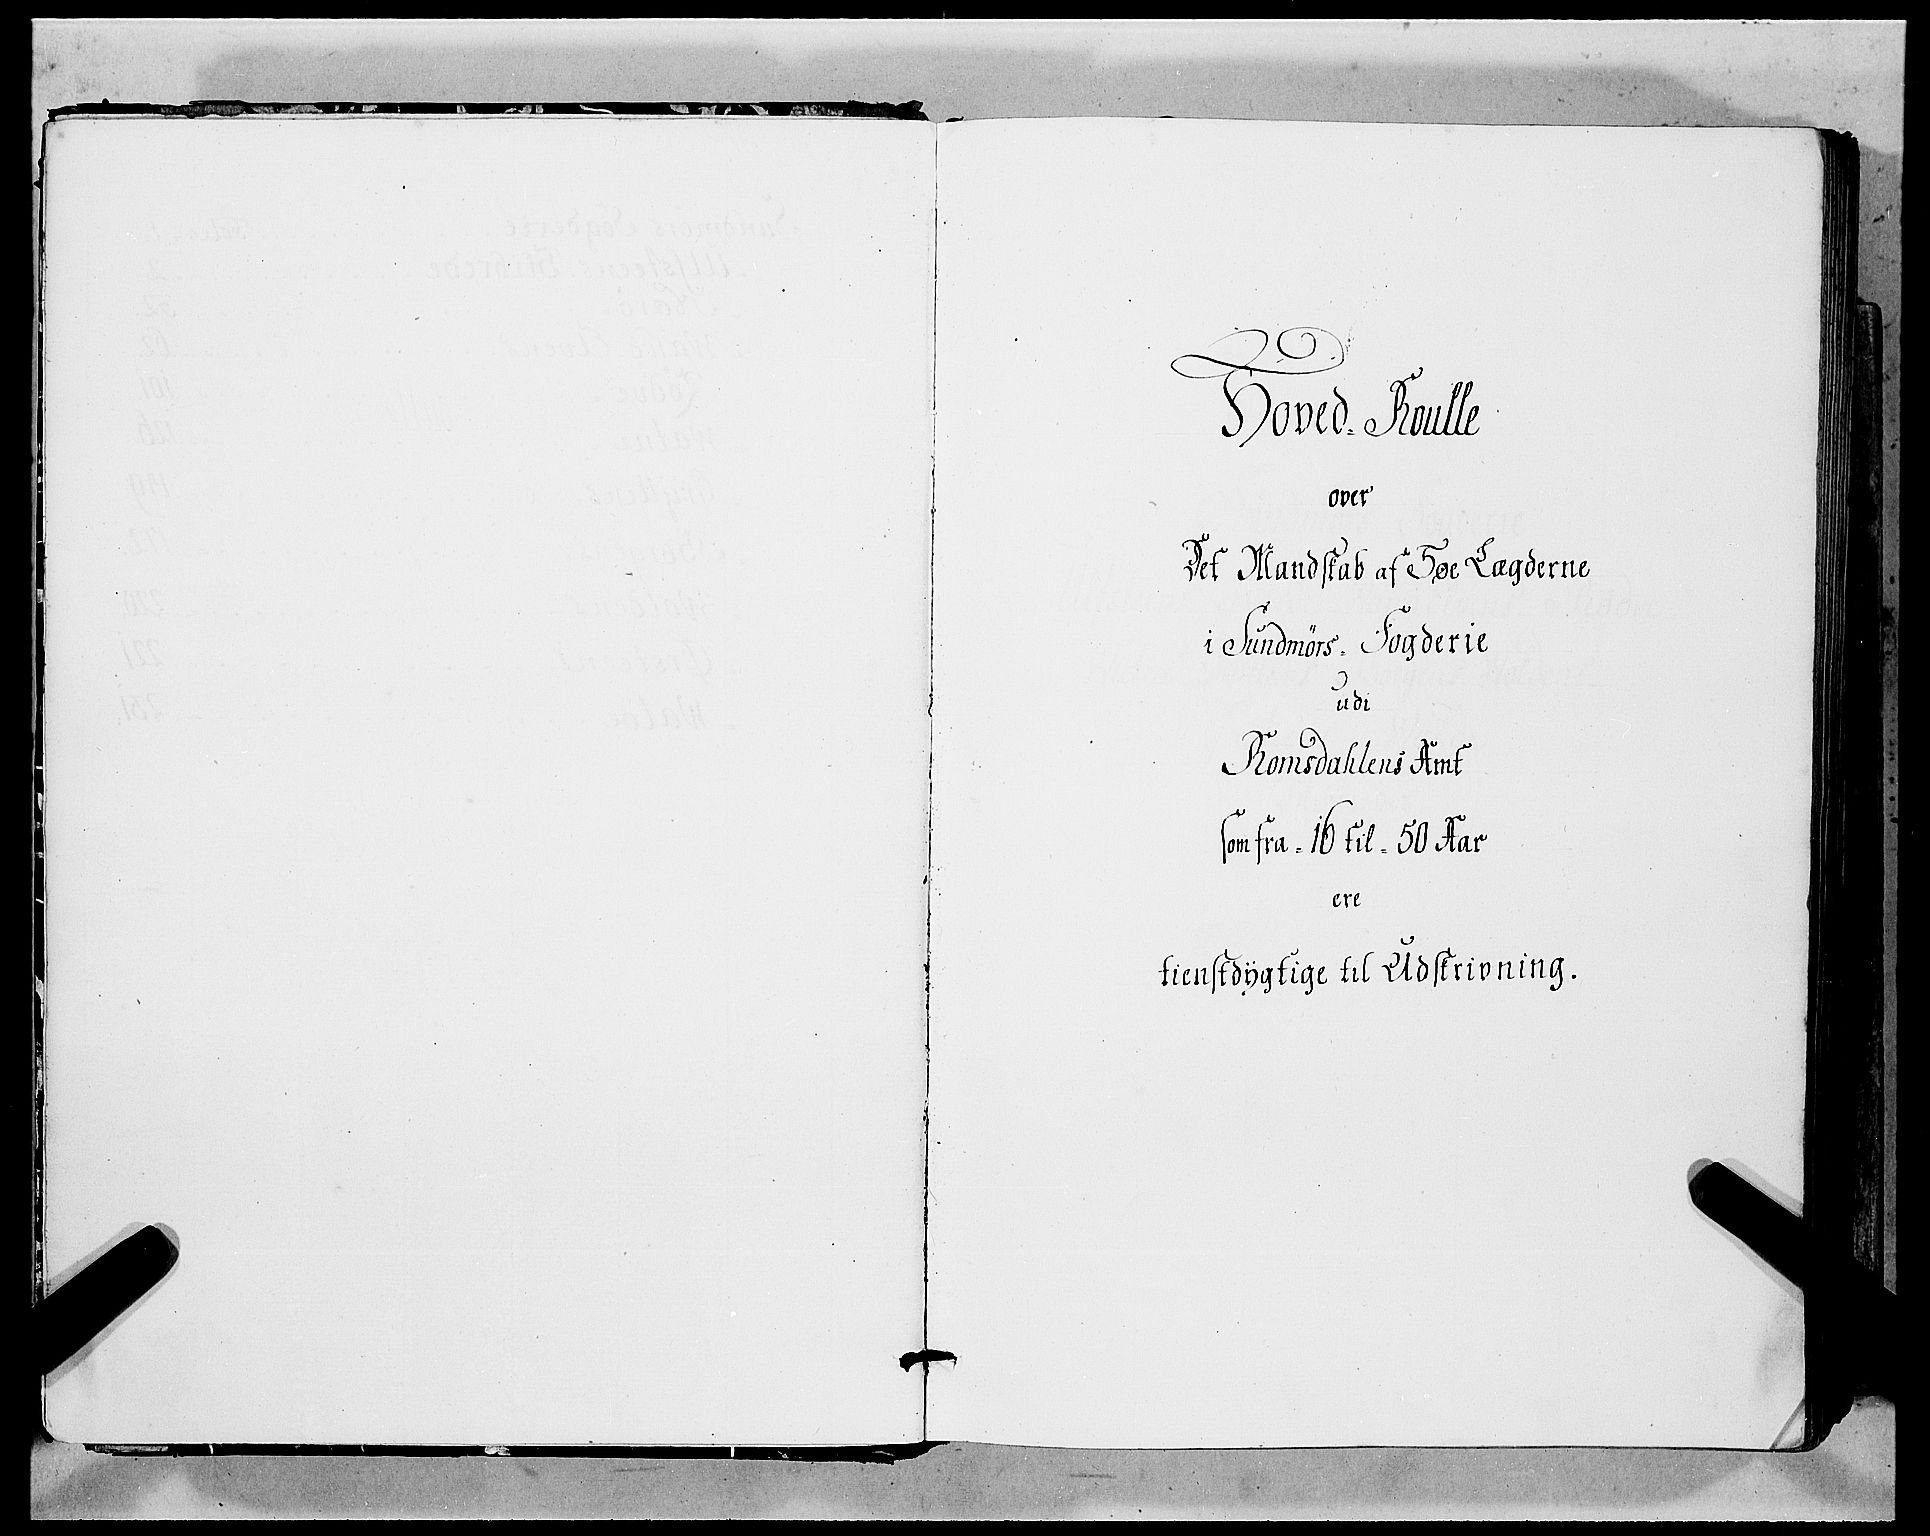 Hoved-Roulle
over
Det Mandskab af Søe Lægderne
i Sundmörs-Fogderie
udi
Romsdahlens Amt
som fra-16 til-50 Aar
ere
tienstdÿgtige til Udskrivning.